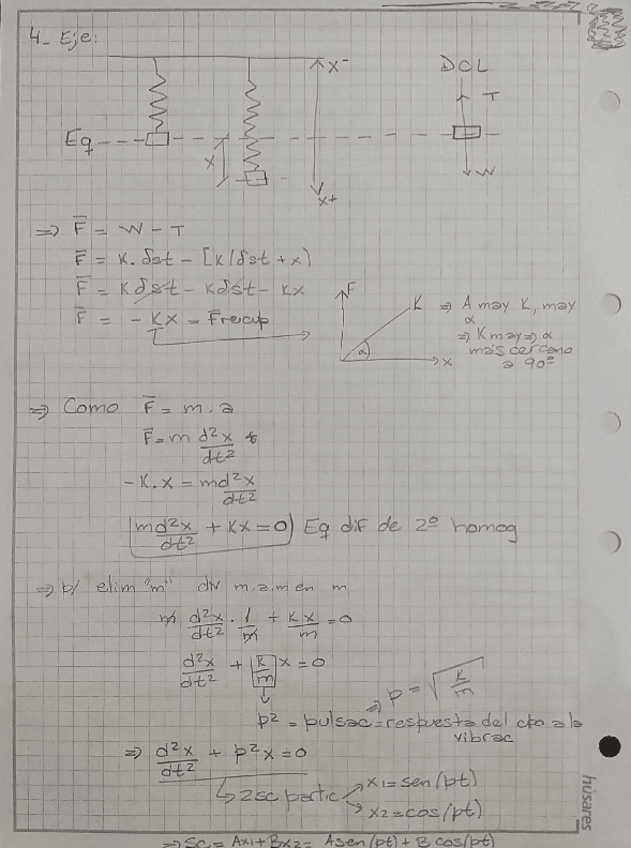 4_ Eje:
x-
DCL
T
Eq
x
W
x+
=> F̅ = W - T
F̅ = K. δst - [K(δst + x)
F̅ = Kδst - Kδst - Kx
F̅ = - Kx = Frecup
F
K => A may K, may α
α
x
=> K may => α más cercano a 90º
=> Como F̅ = m.a
F̅ = m d²x/dt²
-K.x = m d²x/dt²
m d²x/dt² + Kx = 0 Eq dif de 2º homog
=> b/ elim "m" div m.a.m en m
m d²x/dt² . 1/m + Kx/m = 0
d²x/dt² + K/m x = 0
=> p = √K/m
p² = pulsac = respuesta del cpo a la vibrac
=> d²x/dt² + p²x = 0
2sc partic
x1 = sen(pt)
x2 = cos(pt)
=> SC = Ax1 + Bx2 = A sen(pt) + B cos(pt)
húsares